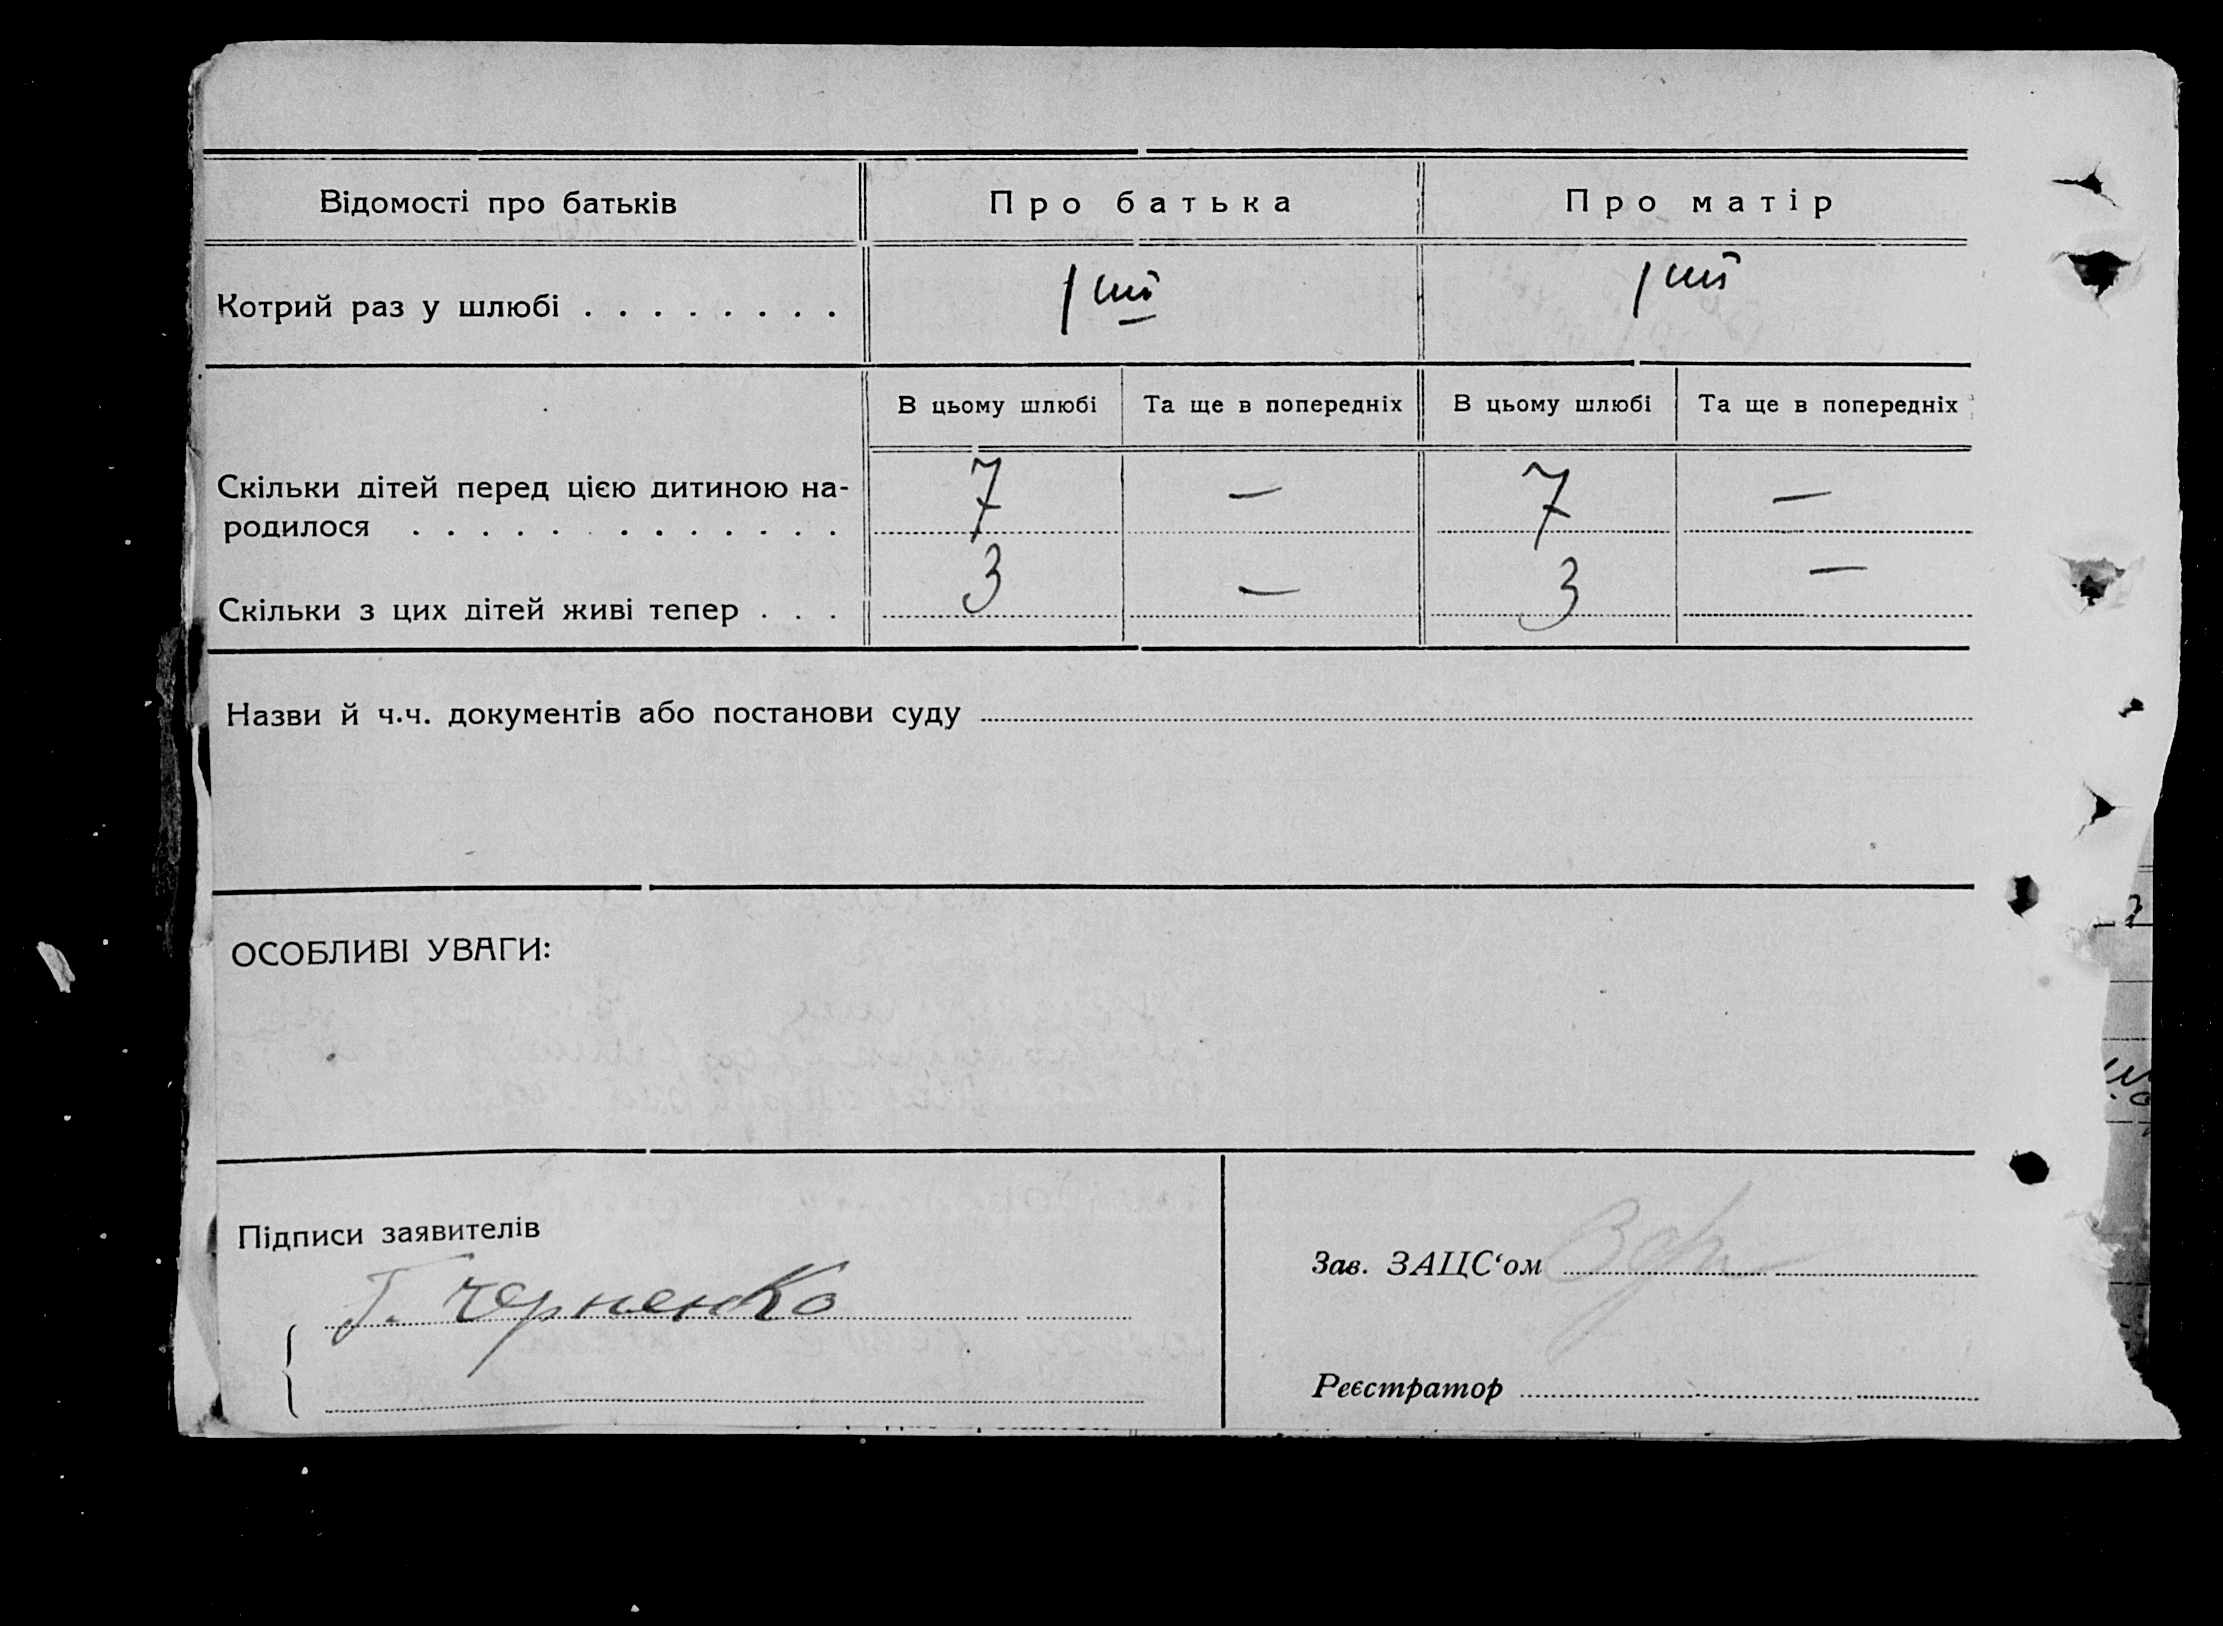 Відомості про батьків Про батька Про матір
Котрий раз у шлюбі . . . . . . . . 1ший 1ший
В цьому шлюбі Та ще в попередніх В цьому шлюбі Та ще в попередніх
Скільки дітей перед цією дитиною на-
родилося . . . . . . . . . . . . . 7 — 7 —
Скільки з цих дітей живі тепер . . . 3 — 3 —
Назви й ч.ч. документів або постанови суду
ОСОБЛИВІ УВАГИ:
Підписи заявителів
Г. Черненко
Зав. ЗАЦС‘ом
Реєстратор